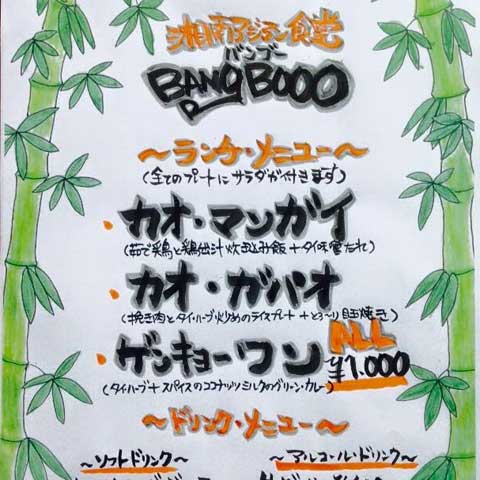 湘南アジアン食堂
バンブー
BANGBOOO
～ランチ・メニュー～
(全てのプレートにサラダが付きます)
カオ・マンガイ
(茹で鶏と鶏出汁炊き込み飯+タイ味噌だれ)
カオ・ガパオ
(挽き肉とタイ・ハーブ炒めのライスプレート+とろ～り目玉焼き)
ALL
ゲンキョーワン
¥1.000
(タイ・ハーブ+スパイスのココナッツミルクのグリーン・カレー)
～ドリンク・メニュー～
～ソフトドリンク～
～アルコール・ドリンク～